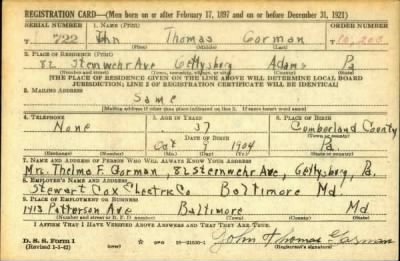 REGISTRATION CARD—(Men born on or after February 17, 1897 and on or before December 31, 1921)
SERIAL NUMBER 1. NAME (Print) ORDER NUMBER
722 John Thomas Gorman
(First) (Middle) (Last)
2. PLACE OF RESIDENCE (Print)
82 Sternwehr Ave Gettysburg Adams Pa
(Number and street) (Town, township, village, or city) (County) (State)
[THE PLACE OF RESIDENCE GIVEN ON THE LINE ABOVE WILL DETERMINE LOCAL BOARD
JURISDICTION; LINE 2 OF REGISTRATION CERTIFICATE WILL BE IDENTICAL]
3. MAILING ADDRESS
Same
[Mailing address if other than place indicated on line 2. If same insert word same]
4. TELEPHONE 5. AGE IN YEARS 6. PLACE OF BIRTH
None 37 Cumberland County
DATE OF BIRTH (Town or county)
Oct 9 1904 Pa
(Mo.) (Day) (Yr.) (State or country)
7. NAME AND ADDRESS OF PERSON WHO WILL ALWAYS KNOW YOUR ADDRESS
Mrs. Thelma F. Gorman, 82 Sternwehr Ave, Gettysburg, Pa,
8. EMPLOYER'S NAME AND ADDRESS
Stewart Cox Electric Co Baltimore Md
9. PLACE OF EMPLOYMENT OR BUSINESS
1413 Patterson Ave Baltimore Md
(Number and street or R. F. D. number) (Town) (County) (State)
I AFFIRM THAT I HAVE VERIFIED ABOVE ANSWERS AND THAT THEY ARE TRUE.
D. S. S. Form 1
(Revised 1-1-42) GPO 16—21630-1 John Thomas Gorman
(Registrant's signature)